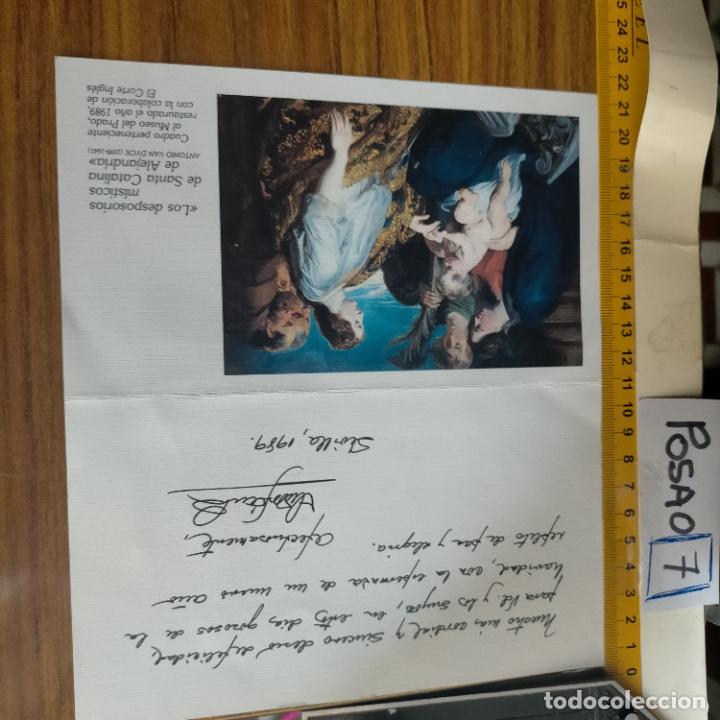 «Los desposorios
místicos
de Santa Catalina
de Alejandría»
ANTONIO VAN DYCK (1599-1641)
Cuadro perteneciente
al Museo del Prado,
restaurado el año 1989,
con la colaboración de
El Corte Inglés
Nuestro más cordial y sincero deseo de felicidad,
para Vd. y los suyos, en estos días gozosos de la
Navidad, con la esperanza de un nuevo año
repleto de paz y alegría.
Afectuosamente,
Sevilla, 1989.
0 1 2 3 4 5 6 7 8 9 10 11 12 13 14 15 16 17 18 19 20 21 22 23 24 25
POSAO
7
todocoleccion.net